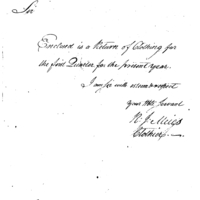 Sir
Enclosed is a Return of Clothing for
the first Quarter for the present year.
I am Sir with esteem & respect
your Obt Servant
R. J. Meigs